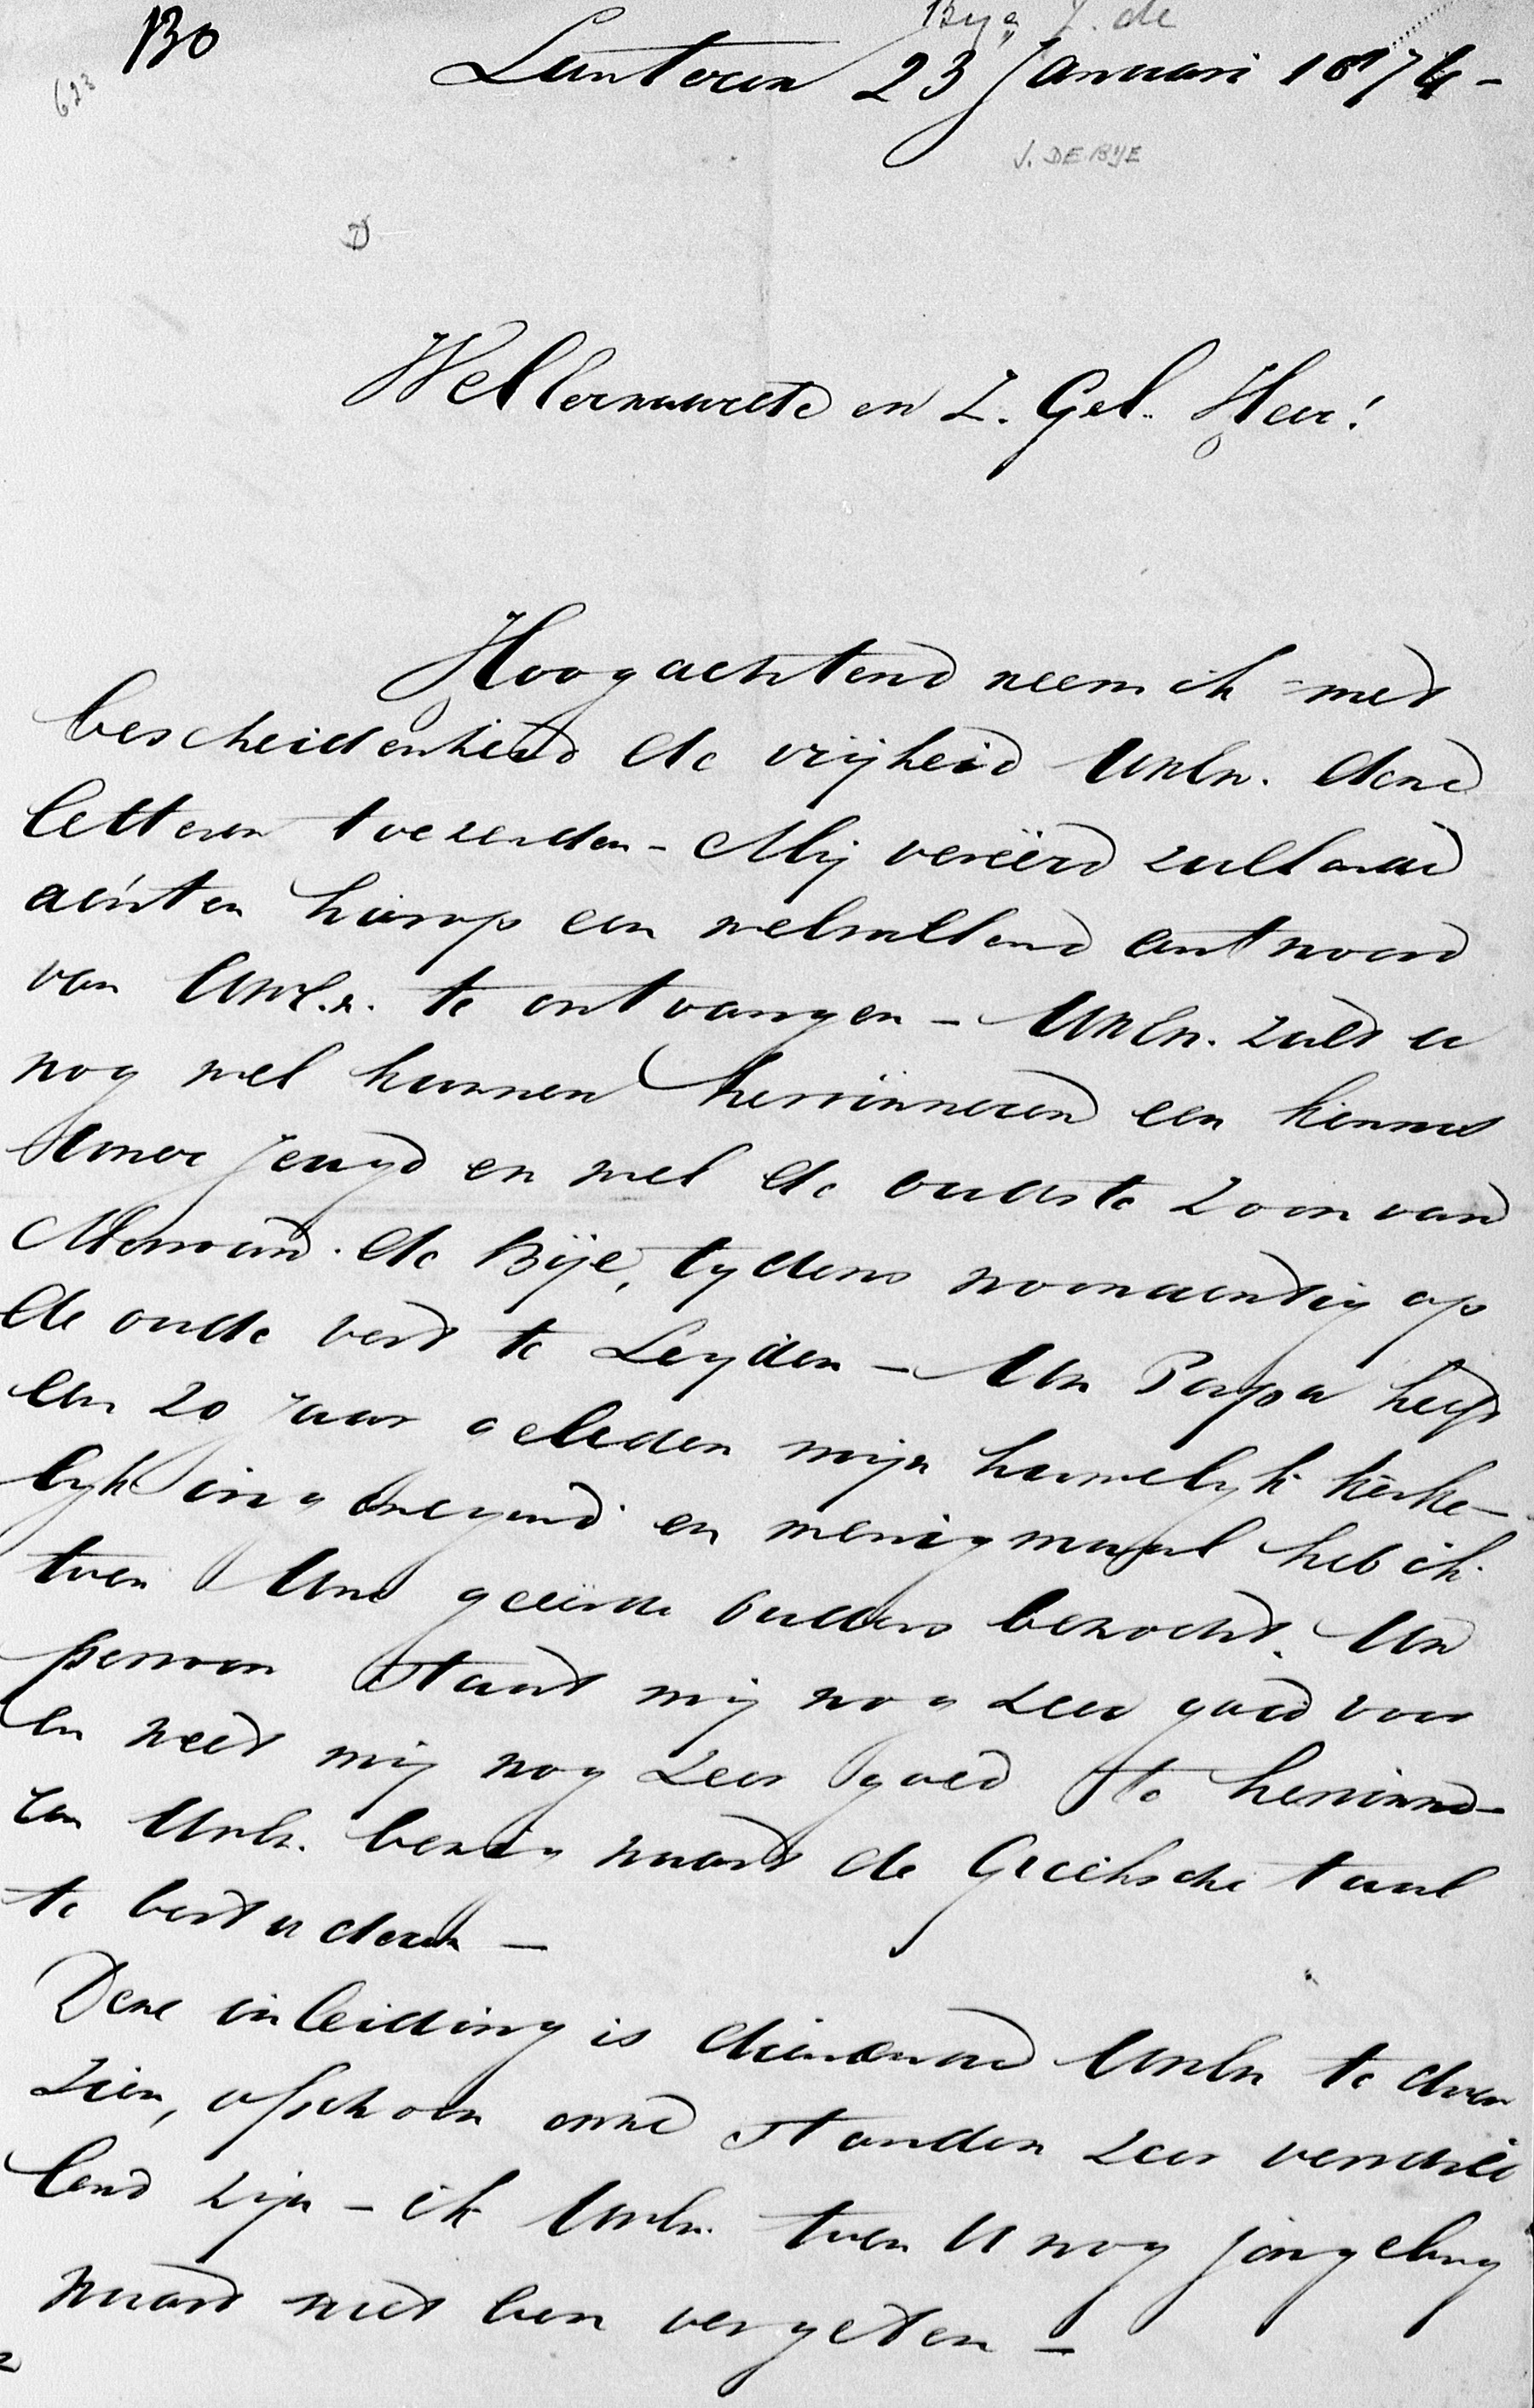 Bye, J. de
BO
623
Lunteren 23 Januari 1874 -
J. DE BYE
D
WelEerwaarde en Z. Gel. Heer!
Hoogachtend neem ik met
bescheidenheid de vrijheid UwEw. deze
letteren toezenden - Mij vereerd zullende
achten hierop een welwillend antwoord
van UwE.w. te ontvangen - UwEw. zult u
nog wel kunnen herrinneren een kennis
Uwer jeugd en wel de oudste zoon van
Mevrouw. de Bije, tydens woonachtig op
de oude vest te Leyden - Uw Papa heeft
een 20 jaar geleden mijn huwelyk kerke-
lyk ingezegend en menigmaal heb ik
toen Uwe geëerde ouders bezocht. Uw
persoon staat mij nog zeer goed voor
en weet mij nog zeer goed te herinne-
ren UwEw. bezig waart de Grieksche taal
te bestuderen -
Deze inleiding is dienende UwEw te doen
zien, ofschoon onze standen zeer verschil
lend zijn - ik UwEw. toen U nog jongeling
waart niet ben vergeten -